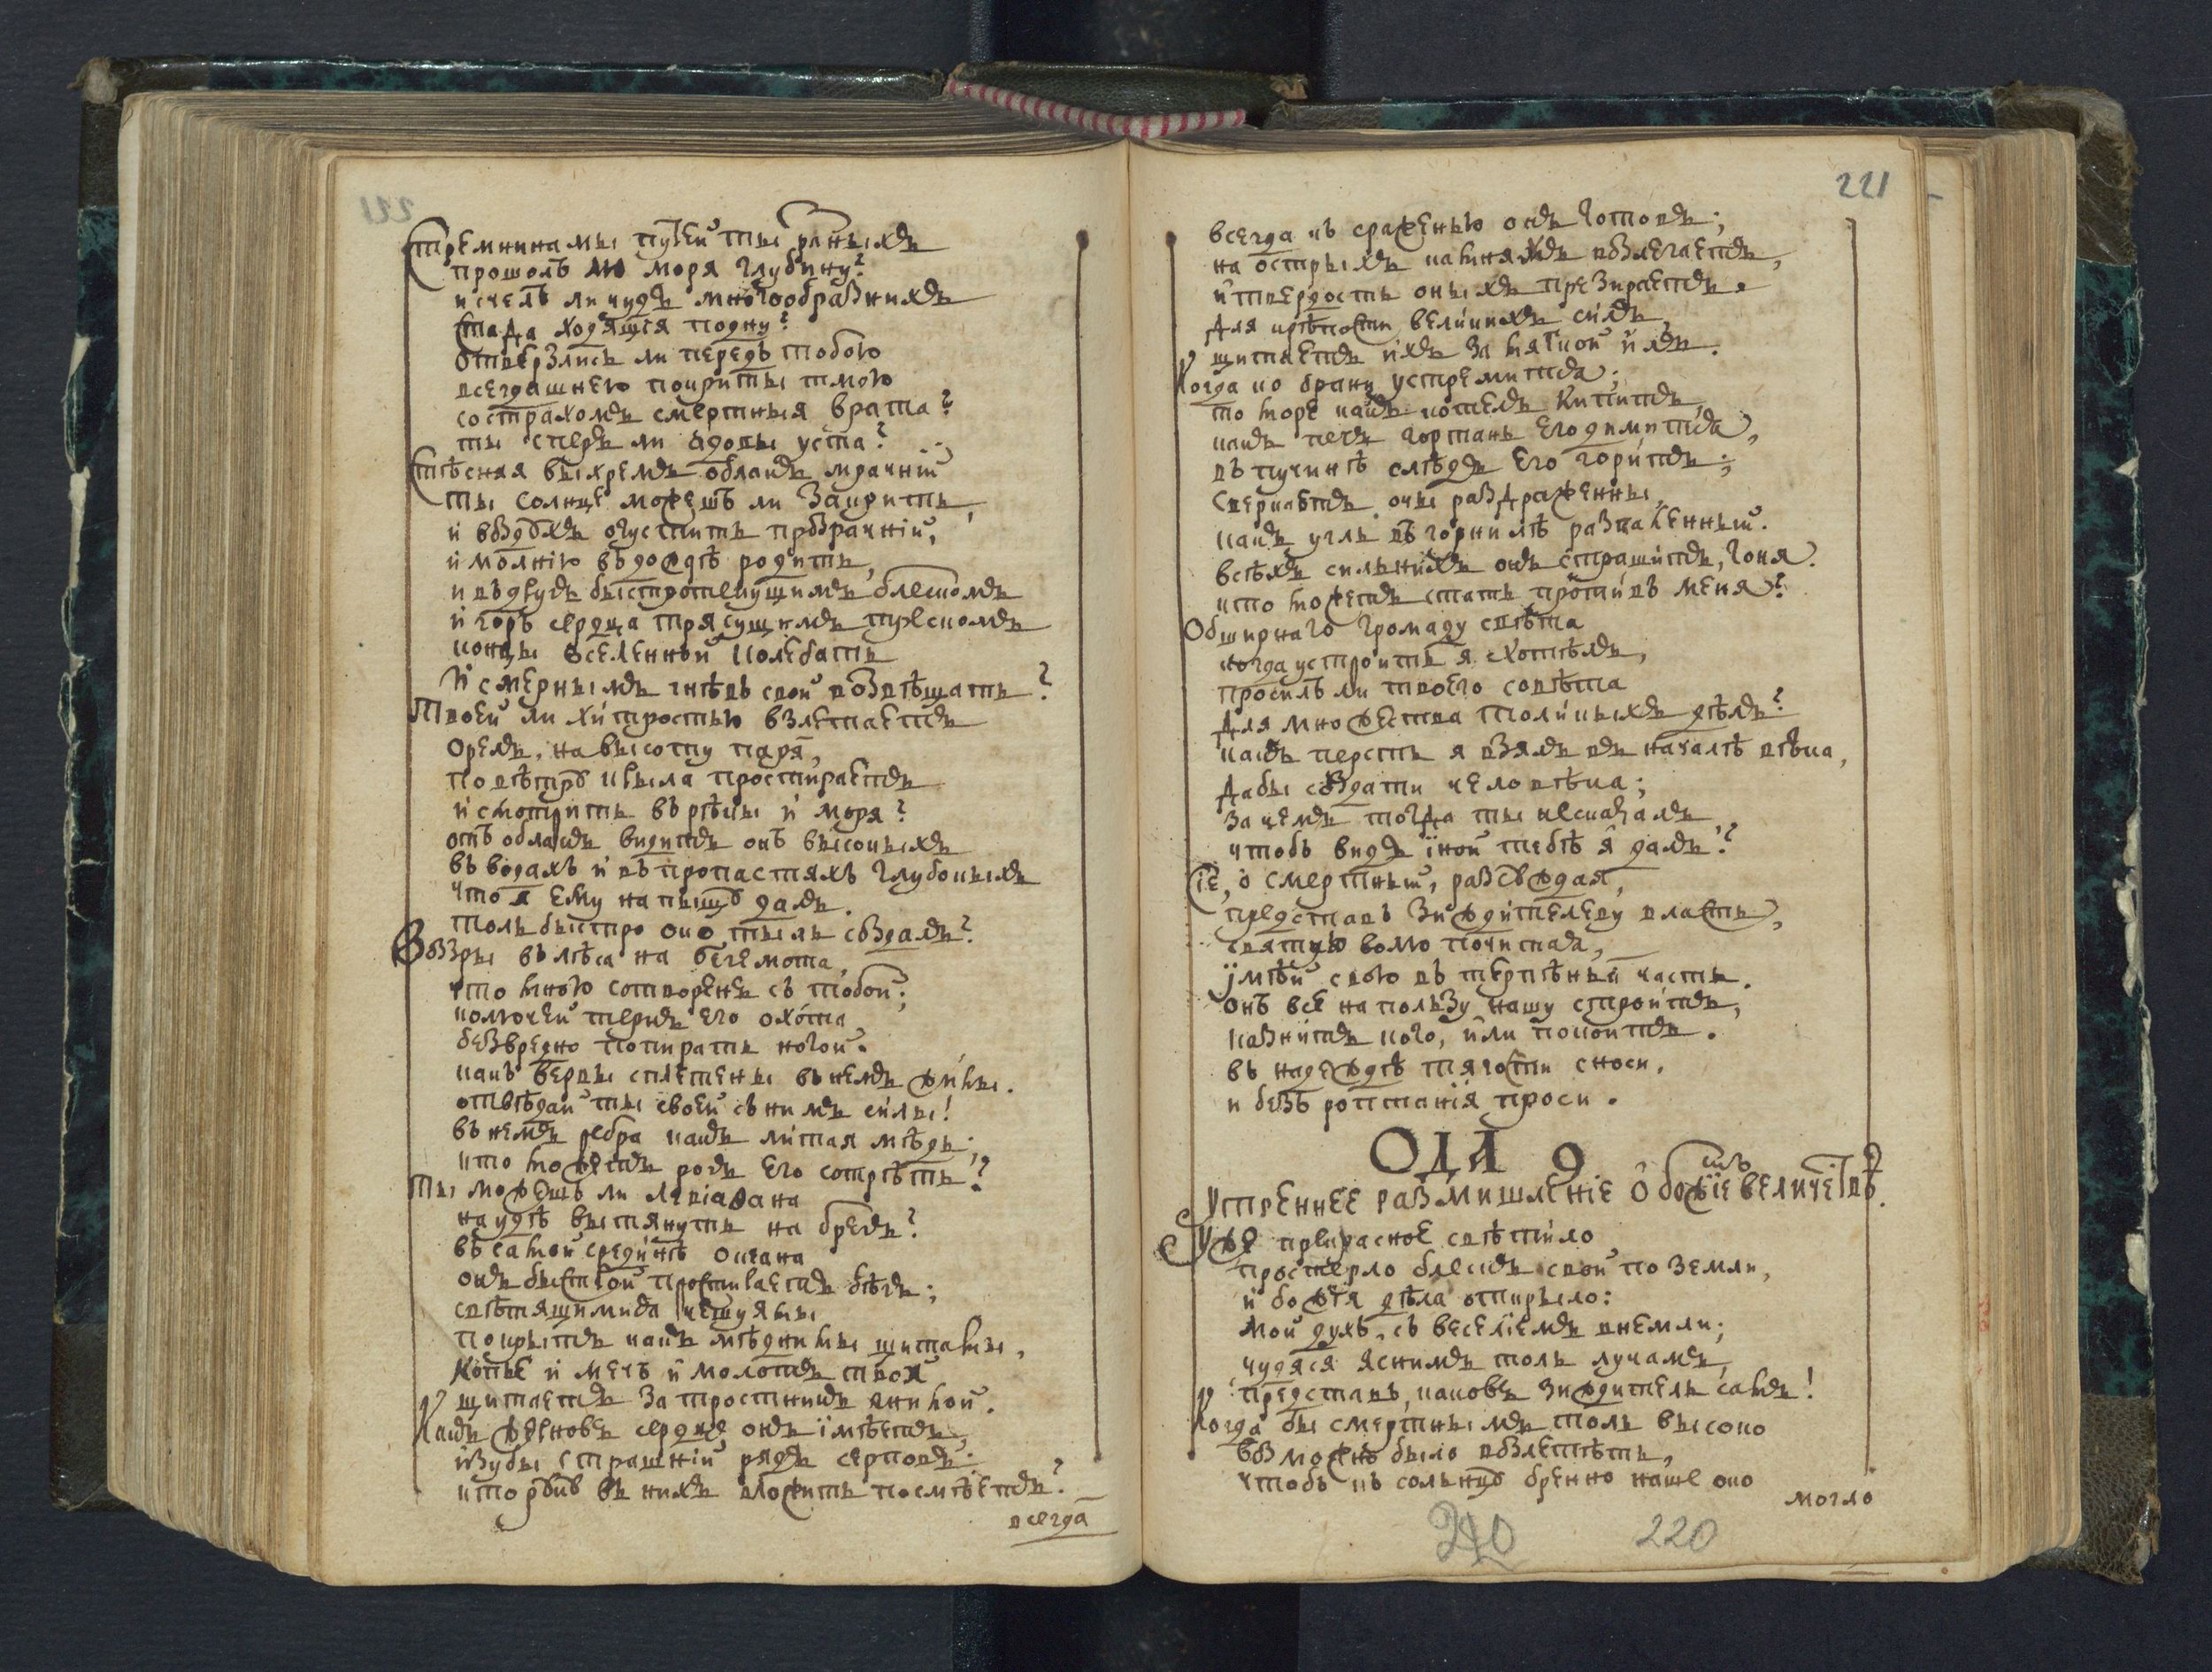 Стремнинами путей ты разныхъ
прошолъ ли моря глубину?
исчелъ ли чудъ многообразнихъ
стада ходящїя подну?
отверзлись ли передъ тобою
всегдашнею покрыты тмою
со страхомъ смертныя врата?
ты сперъ ли адовы уста?
Стѣсняя выхремъ облакъ мрачнїй
ты солнце можешъ ли закрить,
и воздохъ огустить прозрачнїй,
и молнїю въ дождѣ родить,
и въдругъ быстротекущимъ блескомъ
и горъ сердца трясущимъ трескомъ
концы вселенной колебать
и смертнымъ гнѣвъ свой возвѣщать?
Твоей ли хитростью взлетаетъ
орелъ, на высоту паря,
по вѣтру крыла простираетъ
и смотрить въ рѣки и моря?
отъ облакъ видитъ онъ высокихъ
въ водахъ и въ пропастяхъ глубокихъ
что я ему на пищу далъ.
толь быстро око тыль создалъ?
Воззри въ лѣса на бегемота,
что мною сотворенъ съ тобой;
колючей тернъ его охота
безвредно попирать ногой.
какъ верви сплетены въ немъ жилы.
отвѣдай ты своей съ нимъ силы!
въ немъ ребра какъ литая мѣдь;
кто можетъ рогъ его сотрѣть?
Ты можешъ ли левіаѳана
на удѣ вытянуть на брегъ?
въ самой срединѣ океана
онъ быстрой простираетъ бѣгъ;
свѣтящимися чешуями
покрытъ какъ мѣдными щитами,
копье и мечъ и молотъ твой
щитаетъ за тростникъ гнилой.
Какъ жерновъ сердце онъ імѣетъ,
и зубы страшнїй рядъ серповъ.
кто руку въ нихъ вложить посмѣетъ?
всегда
221
всегда къ сраженью онъ готовъ;
на острыхъ камняхъ возлегаетъ,
и твердость оныхъ презираетъ.
для крѣпости великихъ силъ,
щитаетъ ихъ за мягкой илъ.
Когда ко брани устремится;
то море какъ котелъ кипитъ,
какъ печь гортань его димится,
въ пучинѣ слѣдъ его горитъ;
сверкаютъ очи раздраженны,
какъ угль въ горнилѣ разкаленный.
всѣхъ сильнихъ онъ страшитъ, гоня.
кто можетъ стать противъ меня?
Обширнаго громаду свѣта
когда устроить я схотѣлъ,
просилъ ли твоего совѣта
для множества толикихъ дѣлъ?
какъ персть я взялъ въ началѣ вѣка,
дабы создати человѣка;
зачемъ тогда ты не сказалъ
чтобъ видъ іной тебѣ я далъ?
Сїе, о смертный, разсуждая,
представъ зиждителеву власть,
святую волю почитая,
імѣй свою въ терпѣньи часть.
онъ все на пользу нашу строитъ,
казнитъ кого, или покоитъ.
въ надеждѣ тяготи сноси,
и безъ роптанїя проси.
ОДА 9
Утреннее размишленїе о божїемъ величествѣ.
Уже прекрасное свѣтило
простерло блескъ свой по земли,
и божїя дѣла открыло:
мой духъ, съ веселїемъ внемли;
чудяся яснимъ толь лучамъ,
представъ, каковъ зиждитель самъ!
Когда бы смертнымъ толь высоко
возможно было возлетѣть,
чтобъ къ сольнцу бренно наше око
могло
220